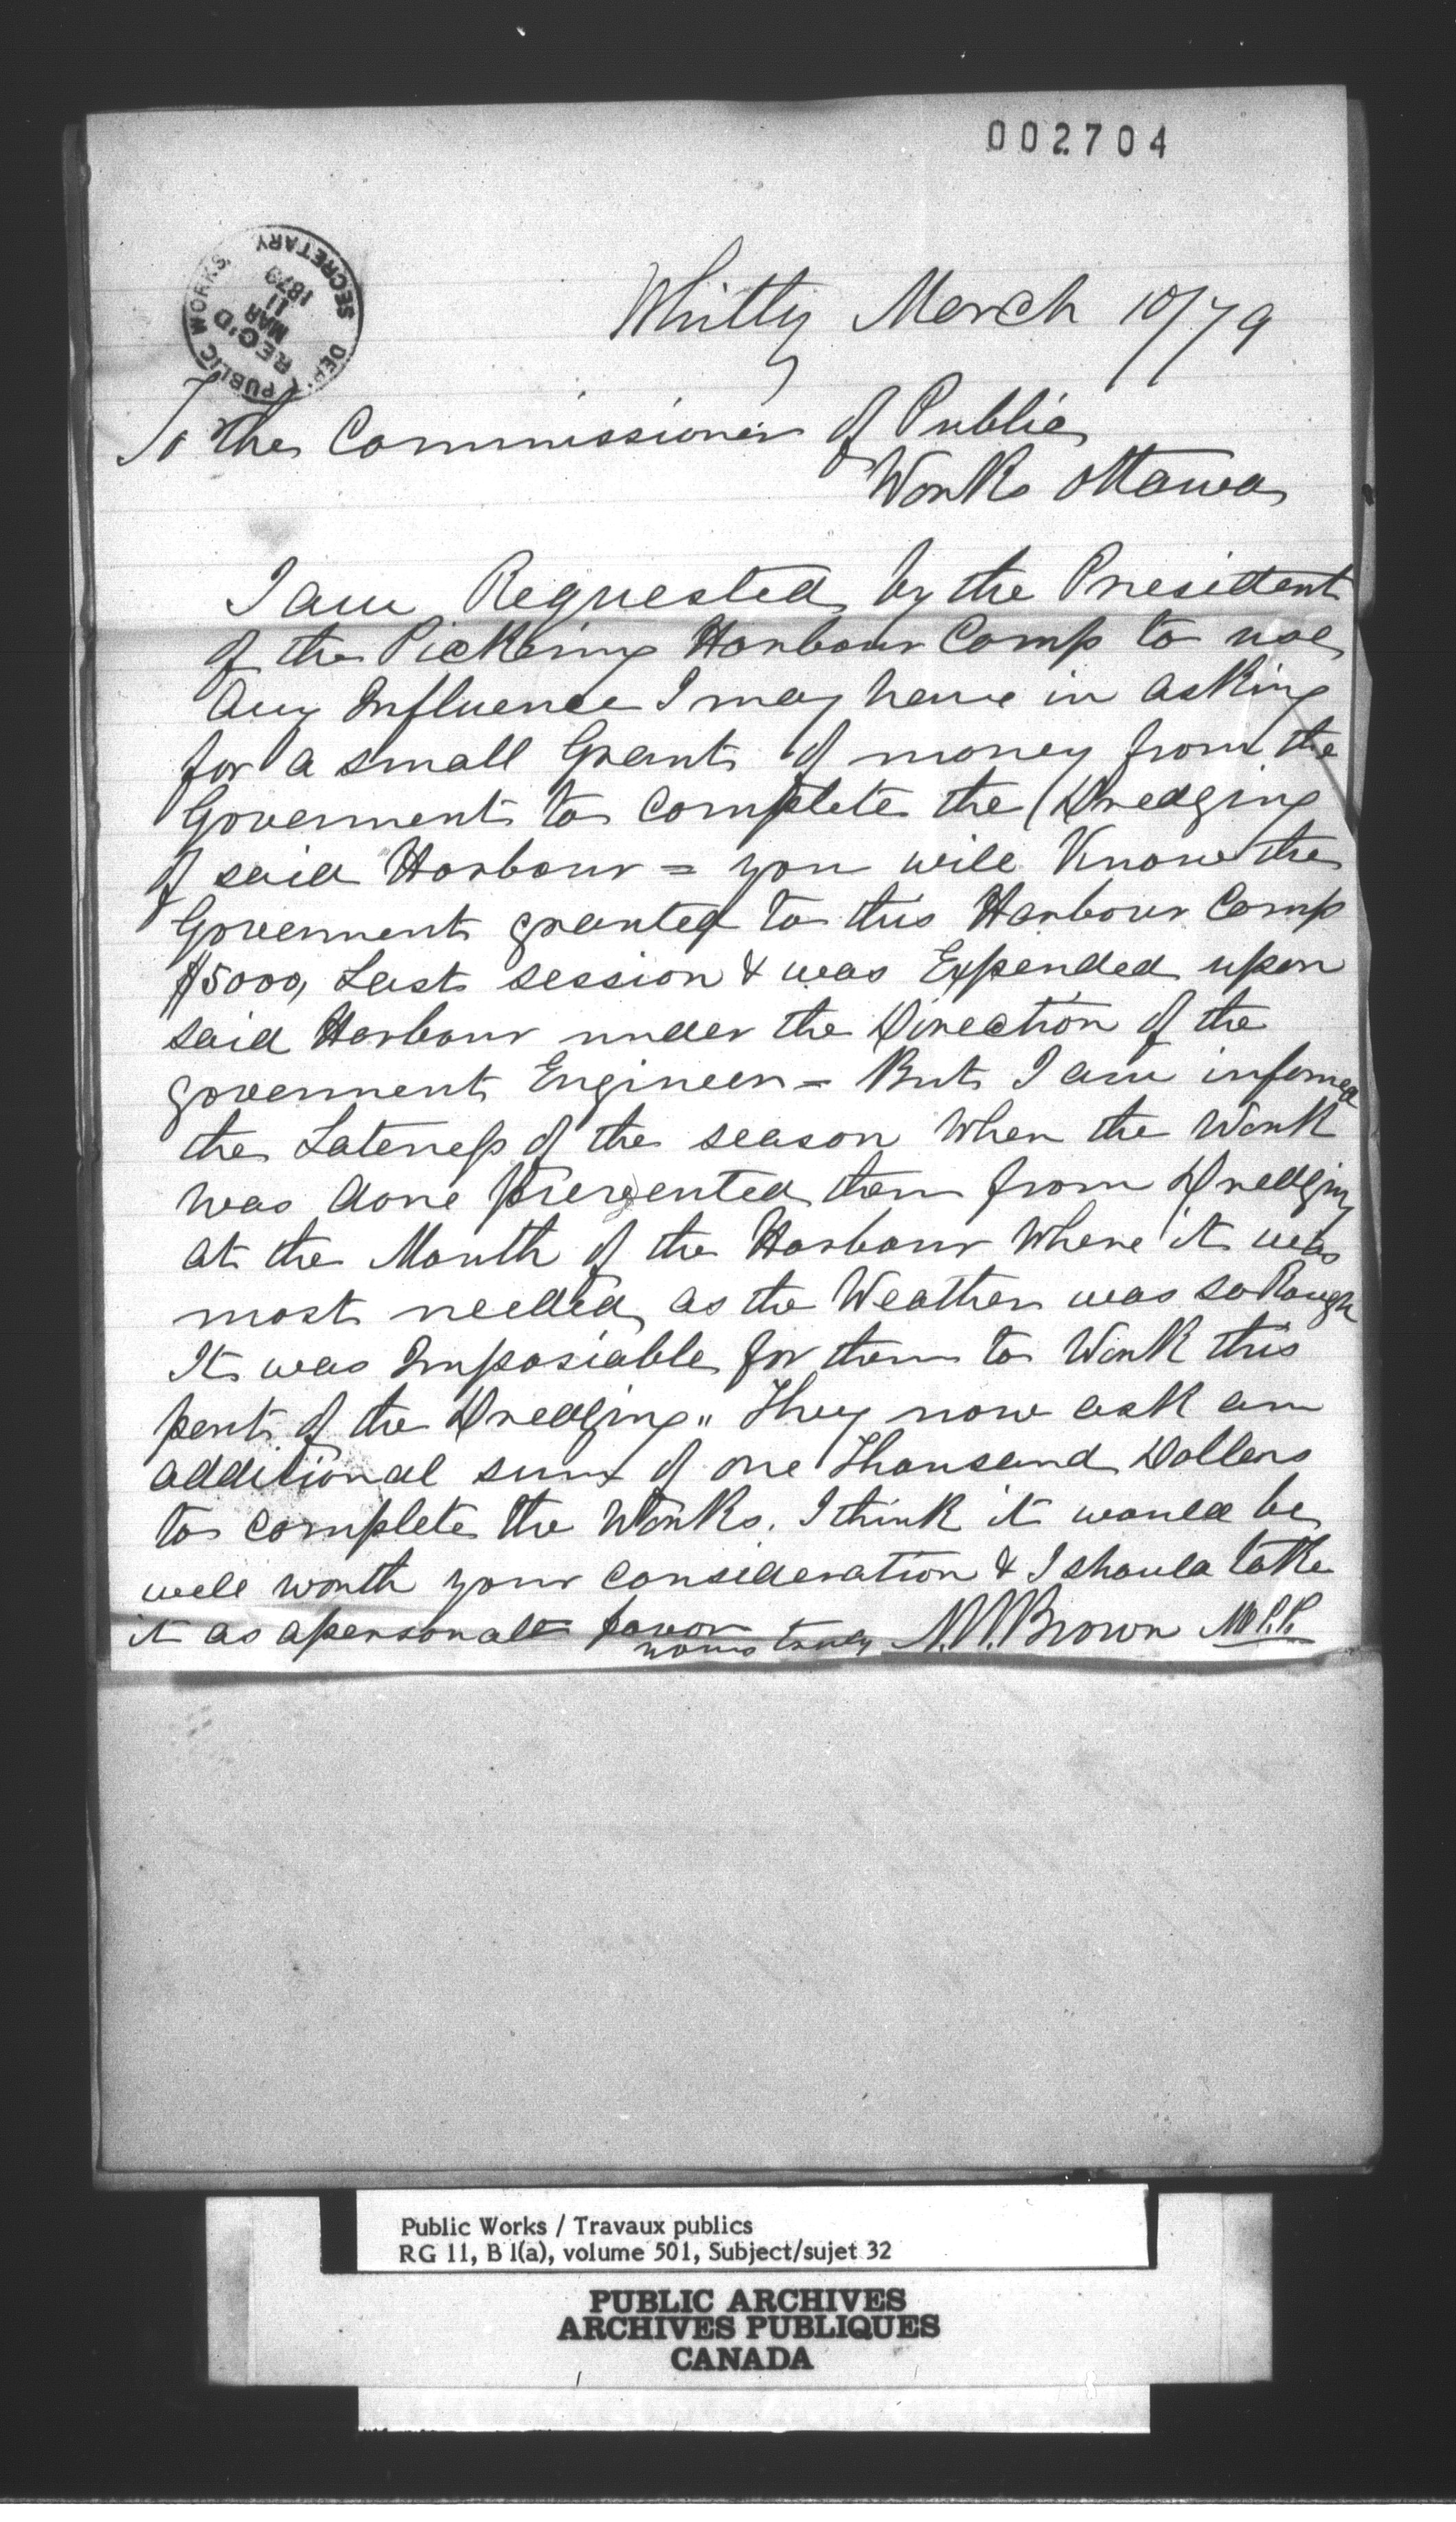 002704
DEP. PUBLIC WORKS SECRETARY
REC'D
MAR
11
1879
Whitby March 10/79
To the Commissioner of Public
Works Ottawa
I am Requested by the President
of the Pickering Harbour Comp to use
Any Influence I may have in asking
for a small Grant of money from the
Goverment to complete the Dredging
of said Harbour = you will Know the
Goverment granted to this Harbour Comp
$5000, Last session & was Expended upon
said Harbour under the Direction of the
goverment Engineer = But I am infomed
the Lateness of the season when the Work
was done prevented them from Dredging
at the Mouth of the Harbour Where it was
most needed as the Weather was so Rough
It was Imposiable for them to Work this
part of the Dredging „ They now ask an
additional sum of one Thousand Dollars
to complete the Works. I think it would be
well worth your consideration & I should take
it as a personal favor
yours truly N.W. Brown M.P.P.
Public Works / Travaux publics
RG 11, B 1(a), volume 501, Subject/sujet 32
PUBLIC ARCHIVES
ARCHIVES PUBLIQUES
CANADA